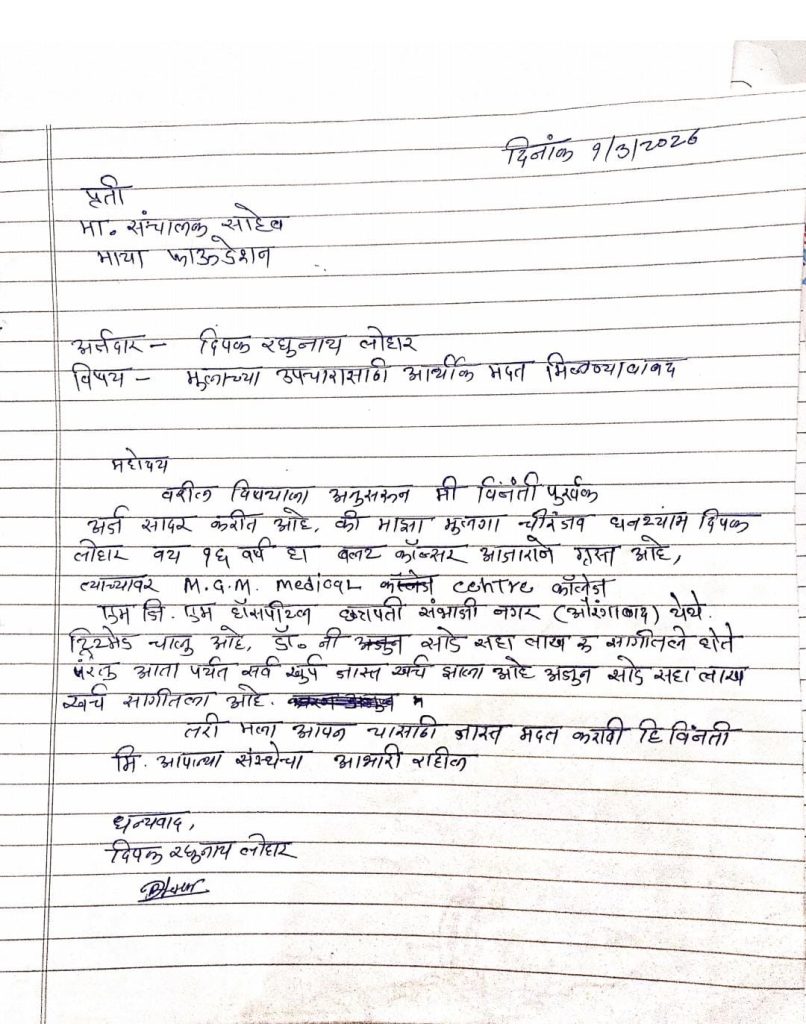 दिनांक १/३/२०२६
प्रती
मा. संचालक साहेब
माया फाऊंडेशन
अर्जदार – दिपक रघुनाथ लोहार
विषय – मुलाच्या उपचारासाठी आर्थीक मदत मिळण्याबाबद
महोदय
वरील विषयाला अनुसरून मी विनंती पुर्वक
अर्ज सादर करीत आहे, की माझा मुलगा चीरंजव घनश्याम दिपक
लोहार वय १६ वर्ष हा बलट कॉन्सर आजाराने ग्रस्त आहे,
त्याच्यावर M.G.M. medical centre कॉलेज
एम जि. एम हॉसपीटल छत्रपती संभाजी नगर (औरंगाबाद) येथे.
ट्रिटमेड चालु आहे, डॉ. नी साडे सहा लाख रु सागीतले होते
परंतु आता पर्यत सर्व खुर्प जास्त खर्च झाला आहे अजुन साडे सहा लाख
खर्च सागीतला आहे.
तरी मला आपन यासाठी जास्त मदत करावी हि विनंती
मि. आपाल्या संस्थेचा आभारी राहील
धन्यवाद,
दिपक रघुनाथ लोहार